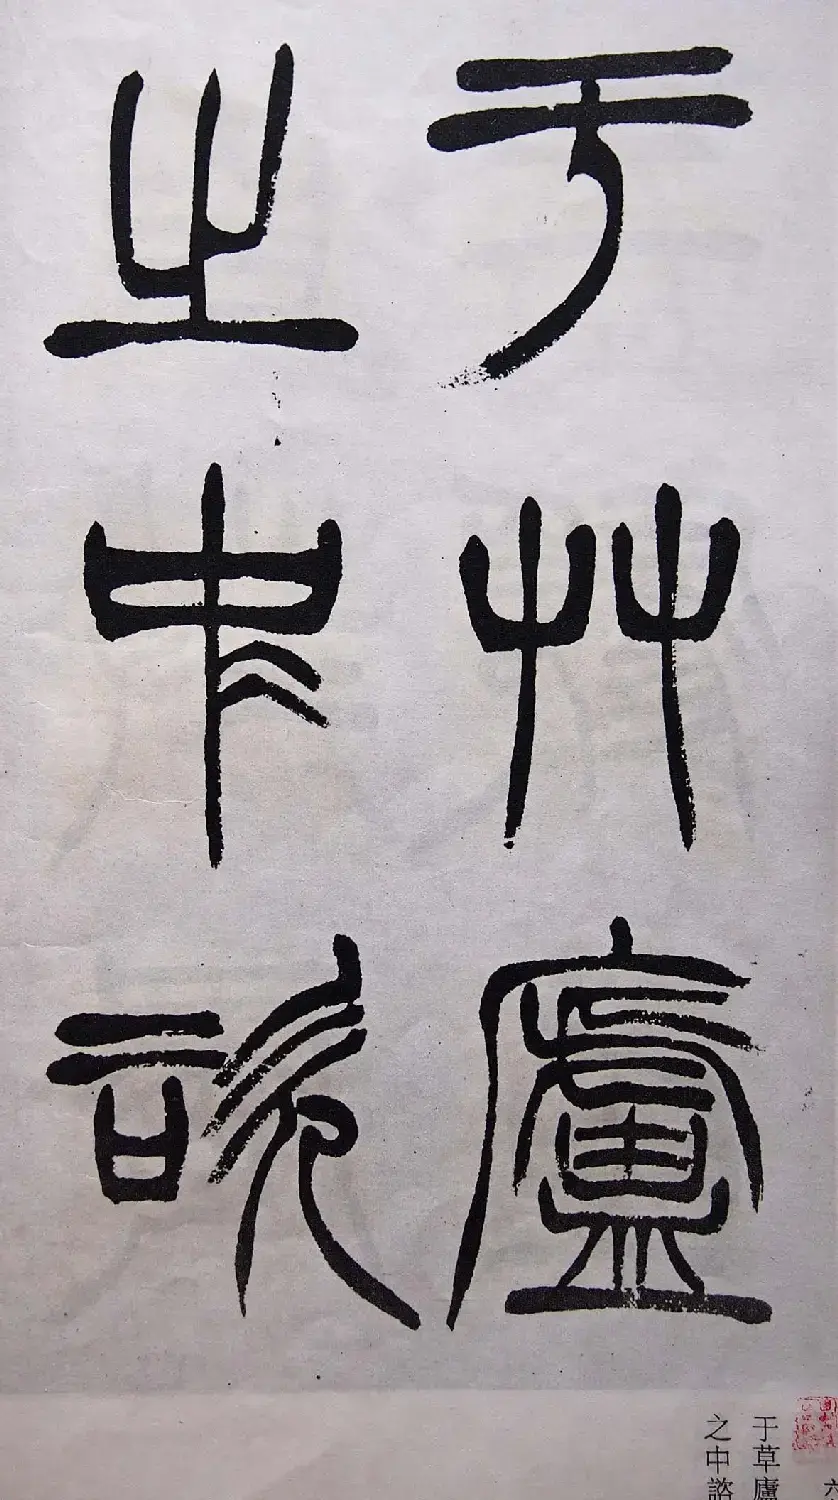 于艸廬
之中諮
于草廬
之中諮